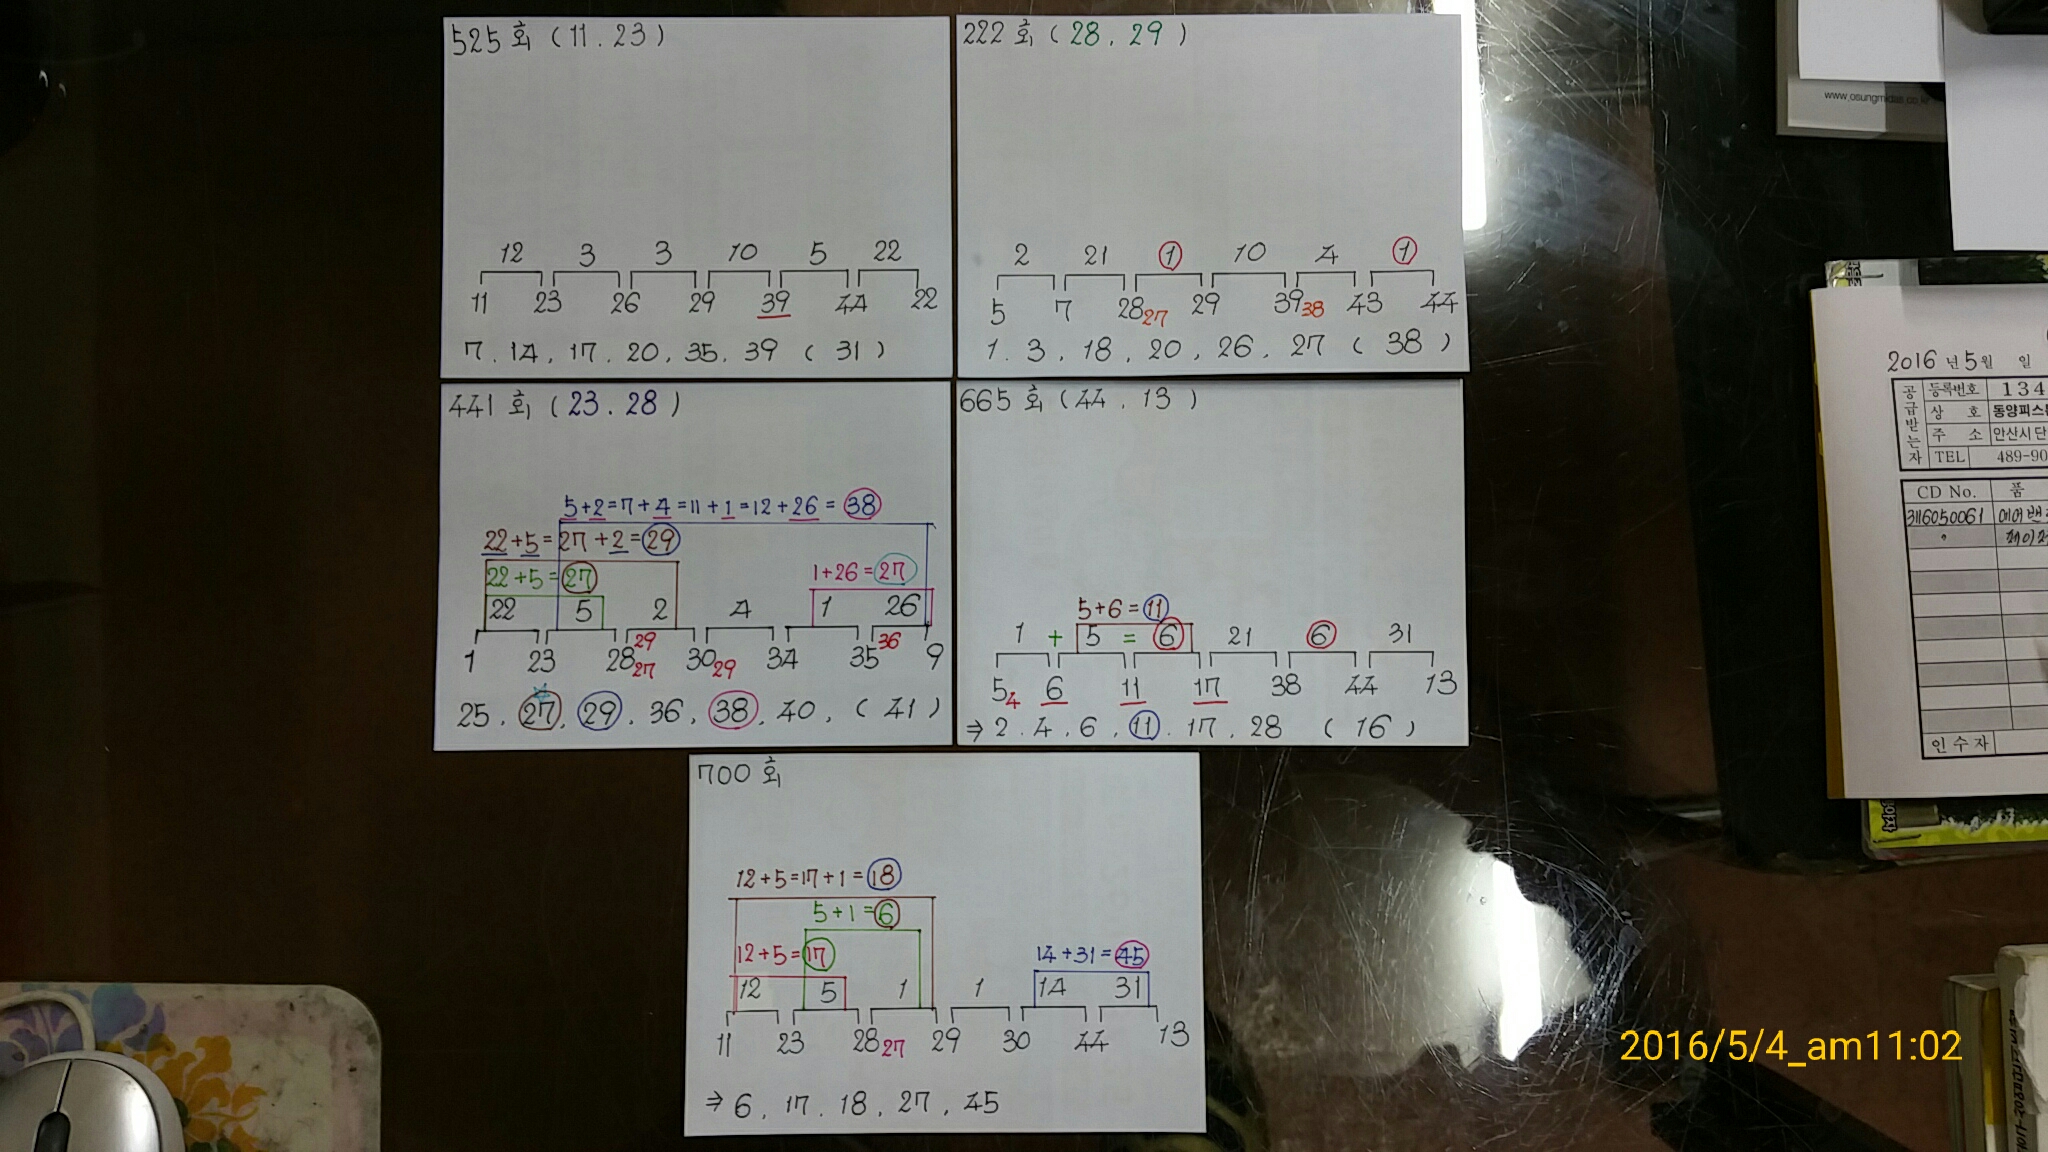 525회 (11.23)
12 3 3 10 5 22
11 23 26 29 39 44 22
7.14.17.20.35.39 (31)
222회 (28.29)
2 21 1 10 4 1
5 7 28 27 29 39 38 43 44
1.3.18.20.26.27 (38)
441회 (23.28)
5+2=7+4=11+1=12+26=38
22+5=27+2=29
22+5=27 1+26=27
22 5 2 4 1 26
29 36
1 23 28 27 30 29 34 35 9
25.27.29.36.38.40.(41)
665회 (44.13)
5+6=11
1 + 5 = 6 21 6 31
5 4 6 11 17 38 44 13
⇒ 2.4.6.11.17.28 (16)
700회
12+5=17+1=18
5+1=6
12+5=17 14+31=45
12 5 1 1 14 31
11 23 28 27 29 30 44 13
⇒ 6.17.18.27.45
www.osungmidas.co.kr
2016년 5월 일
공급받는자
등록번호 134
상호
주소 안산시 단
TEL 489-90
CD No. 품
3116050061
인수자
2016/5/4_am11:02